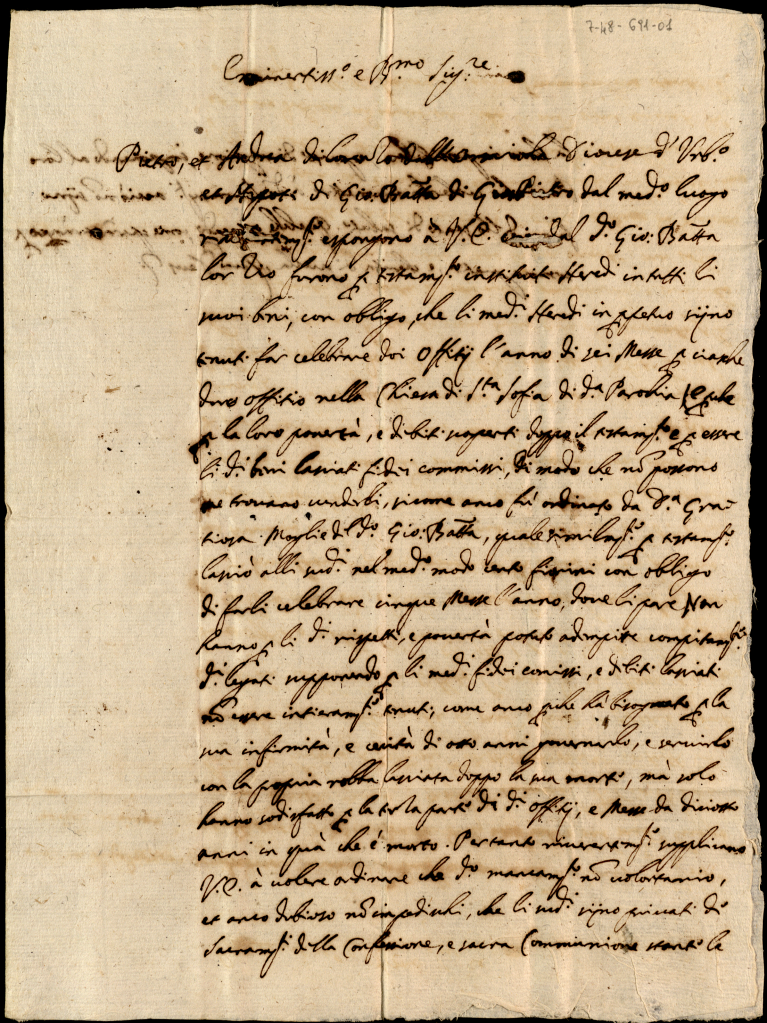 7-48-691-01
Eminentiss.o e R.mo Sig.re
Pietro, et Andrea di Diocese d'Urb.o
et Nipoti di Gio: Batta di dal med.o luogo
espongono à V.E. dal d.o Gio: Batta
lor Zio furono p testam.to instituiti Heredi in tutti li
suoi beni, con obligo, che li med.i Heredi in ppetuo sijno
tenuti far celebrare doi Offitij l'anno di sei Messe p ciasche
duno offitio nella Chiesa di S.ta Sofia di d.a Parochia, e pche
p la loro povertà, e debiti scoperti doppo il testam.to e p essere
li d.i beni lassiati fidei commissi, di modo che nõ possono
ne trovano venderli, sicome anco fù ordinato da D.a Gra-
tiosa Moglie del d.o Gio: Batta, quale similm.te p testam.to
lassiò alli sud.i nel med.o modo cento fiorini con obligo
di farli celebrare cinque Messe l'anno, dove li pare, Non
hanno p li d.i rispetti, e povertà potuto adempite compitam.te
d.i legati supponendo p li med.i fidei comissi, e debiti lassiati
nõ essere intieram.te tenuti, come anco pche hà bisognato p la
sua infirmità, e cecità di otto anni governarlo, e servirlo
con la propria robba lassiata doppo la sua morte, mà solo
hanno sodisfatto p la terza parte di d.i offitij, e Messe da diciotto
anni in quà che è morto. Pertanto riverentem.te supplicano
V.E. à volere ordinare che d.o mancam.to nõ volontario,
et anco dubioso nõ impedischi, che li sud.i sijno privati di
Sacram.ti della Confessione, e sacra Communione stante la